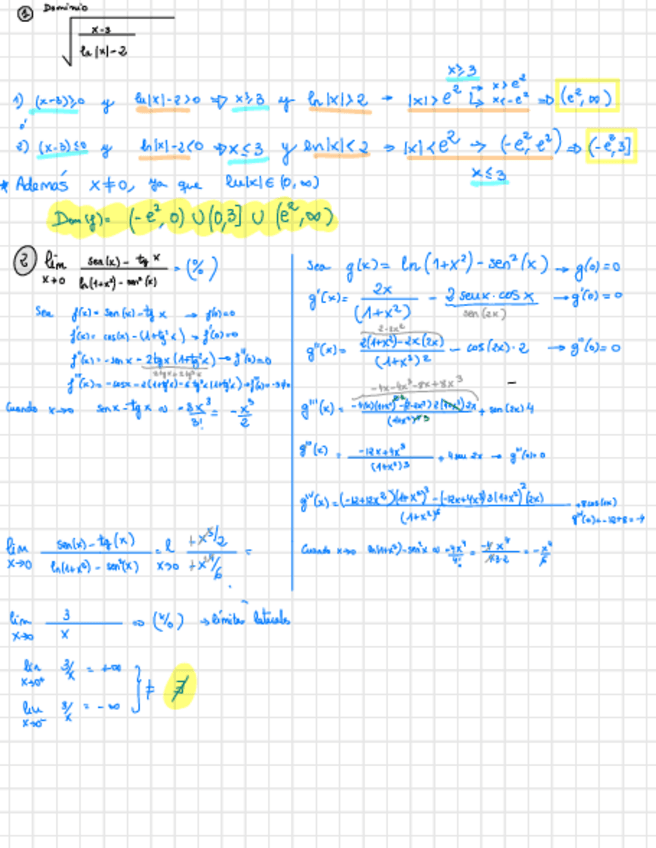 ① Dominio
√((x-3)/(ln|x|-2))
1) (x-3)≥0 y ln|x|-2>0 ⇒ x≥3 y ln|x|>2 → |x|>e² → x>e² x<-e² ⇒ (e², ∞)
x≥3
o'
2) (x-3)≤0 y ln|x|-2<0 ⇒ x≤3 y ln|x|<2 → |x|<e² → (-e², e²) ⇒ (-e², 3]
x≤3
* Además x≠0, ya que ln|x|∈(0,∞)
Dom(f)= (-e², 0) ∪ (0,3] ∪ (e², ∞)
② lim x→0 (sen(x) - tg x)/(ln(1+x²) - sen²(x)) = (0/0)
Sea f(x)= sen(x) - tg x → f(0)=0
f'(x)= cos(x) - (1+tg²x) → f'(0)=0
f''(x)= -sen x - 2tgx(1+tg²x) → f''(0)=0
Cuando x→0 senx - tgx ≈ -3x³/3! = -x³/2
Sea g(x)= ln(1+x²) - sen²(x) → g(0)=0
g'(x)= 2x/(1+x²) - 2senx·cosx → g'(0)=0
sen(2x)
2-2x²
g''(x)= (2(1+x²) - 2x(2x))/(1+x²)² - cos(2x)·2 → g''(0)=0
-4x-4x³-8x+8x³
g'''(x)= + sen(2x)4
g'''(x) = (-12x+4x³)/(1+x²)³ + 4sen 2x → g'''(0)=0
g''''(x)= ((-12+12x²)(1+x²)³ - (-12x+4x³)3(1+x²)²(2x))/(1+x²)⁶ + 8cos(2x)
Cuando x→0 ln(1+x²) - sen²x ≈ -4x⁴/4! = -4x⁴/4·3·2 = -x⁴/6
lim x→0 (sen(x) - tg(x))/(ln(1+x²) - sen²(x)) = l x→0 (+x³/2)/(+x⁴/6) =
lim x→0 3/x ⇒ (k/0) → límites laterales
lim x→0⁺ 3/x = +∞
lim x→0⁻ 3/x = -∞
} ≠ ∄